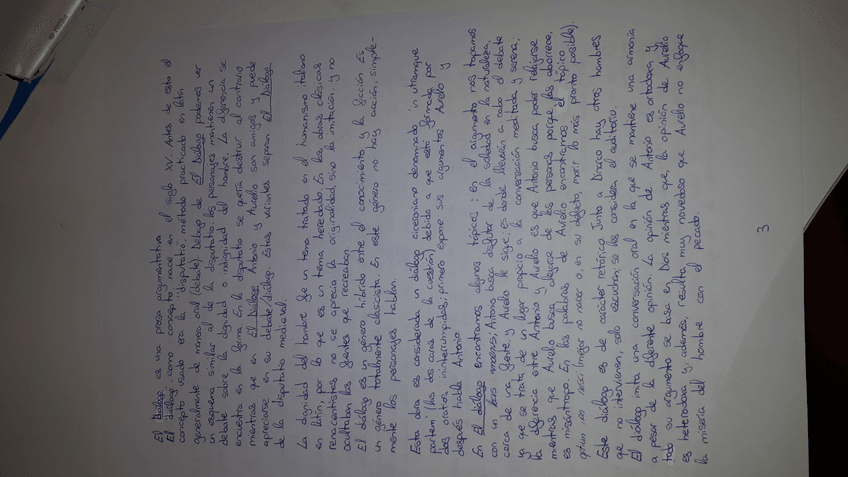 El Diálogo es una prosa argumentativa
El diálogo como concepto nace en el siglo XV. Antes de esto el
concepto usado era la "disputatio", método practicado en latín
generalmente de manera oral (debate). Debajo de El Diálogo podemos ver
un esquema similar al de la disputatio: los personajes mantienen un
debate sobre la dignidad o indignidad del hombre. La diferencia se
encuentra en la forma. En la disputatio se quería destruir al contrario
mientras que en El Diálogo Antonio y Aurelio son amigos y puede
apreciarse en su debate/diálogo. Estas variantes separan El Diálogo
de la disputatio medieval.
La dignidad del hombre fue un tema tratado en el humanismo italiano
en latín, por lo que es un tema heredado. En las obras clásicas
renacentistas, no se aprecia la originalidad, sino la imitación y no
ocultaban las fuentes que recreaban.
El diálogo es un género híbrido entre el conocimiento y la ficción. Es
un género totalmente clasicista. En este género no hay acción, simple-
mente los personajes hablan.
Esta obra es considerada un diálogo ciceroniano denominado in utramque
partem (las dos caras de la cuestión) debido a que está formada por
dos oratios ininterrumpidas; primero expone sus argumentos Aurelio y
después habla Antonio
En El diálogo encontramos algunos tópicos: en el argumento nos topamos
con un locus amoenus, Antonio busca disfrutar de la soledad en la naturaleza,
cerca de una fuente, y Aurelio le sigue; es donde llevarán a cabo el debate
ya que se trata de un lugar propicio a la conversación meditada y serena;
la diferencia entre Antonio y Aurelio es que Antonio busca poder relajarse
mientras que Aurelio busca alejarse de las personas porque las aborrece,
es misántropo. En las palabras de Aurelio encontramos el tópico
optium non nasci (mejor no nacer o, en su defecto, morir lo más pronto posible).
Este diálogo es de carácter retórico. Junto a Dinarco hay otros hombres
que no intervienen, solo escuchan; se les considera el auditorio.
El diálogo imita una conversación oral en la que se mantiene una armonía
a pesar de la diferente opinión. La opinión de Antonio es ortodoxa y
todo su argumento se basa en Dios mientras que, la opinión de Aurelio
es heterodoxa y además, resulta muy novedoso que Aurelio no enfoque
la miseria del hombre con el pecado
3